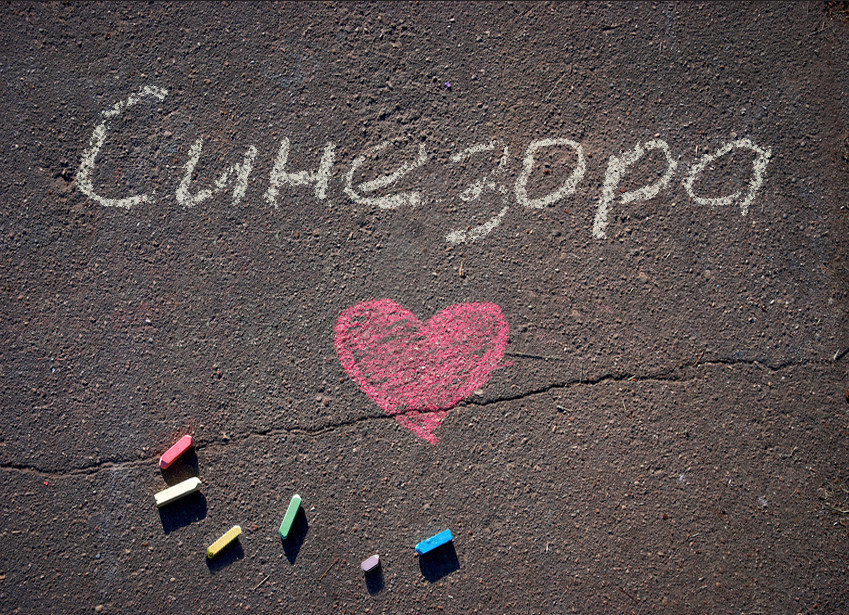 Синегора